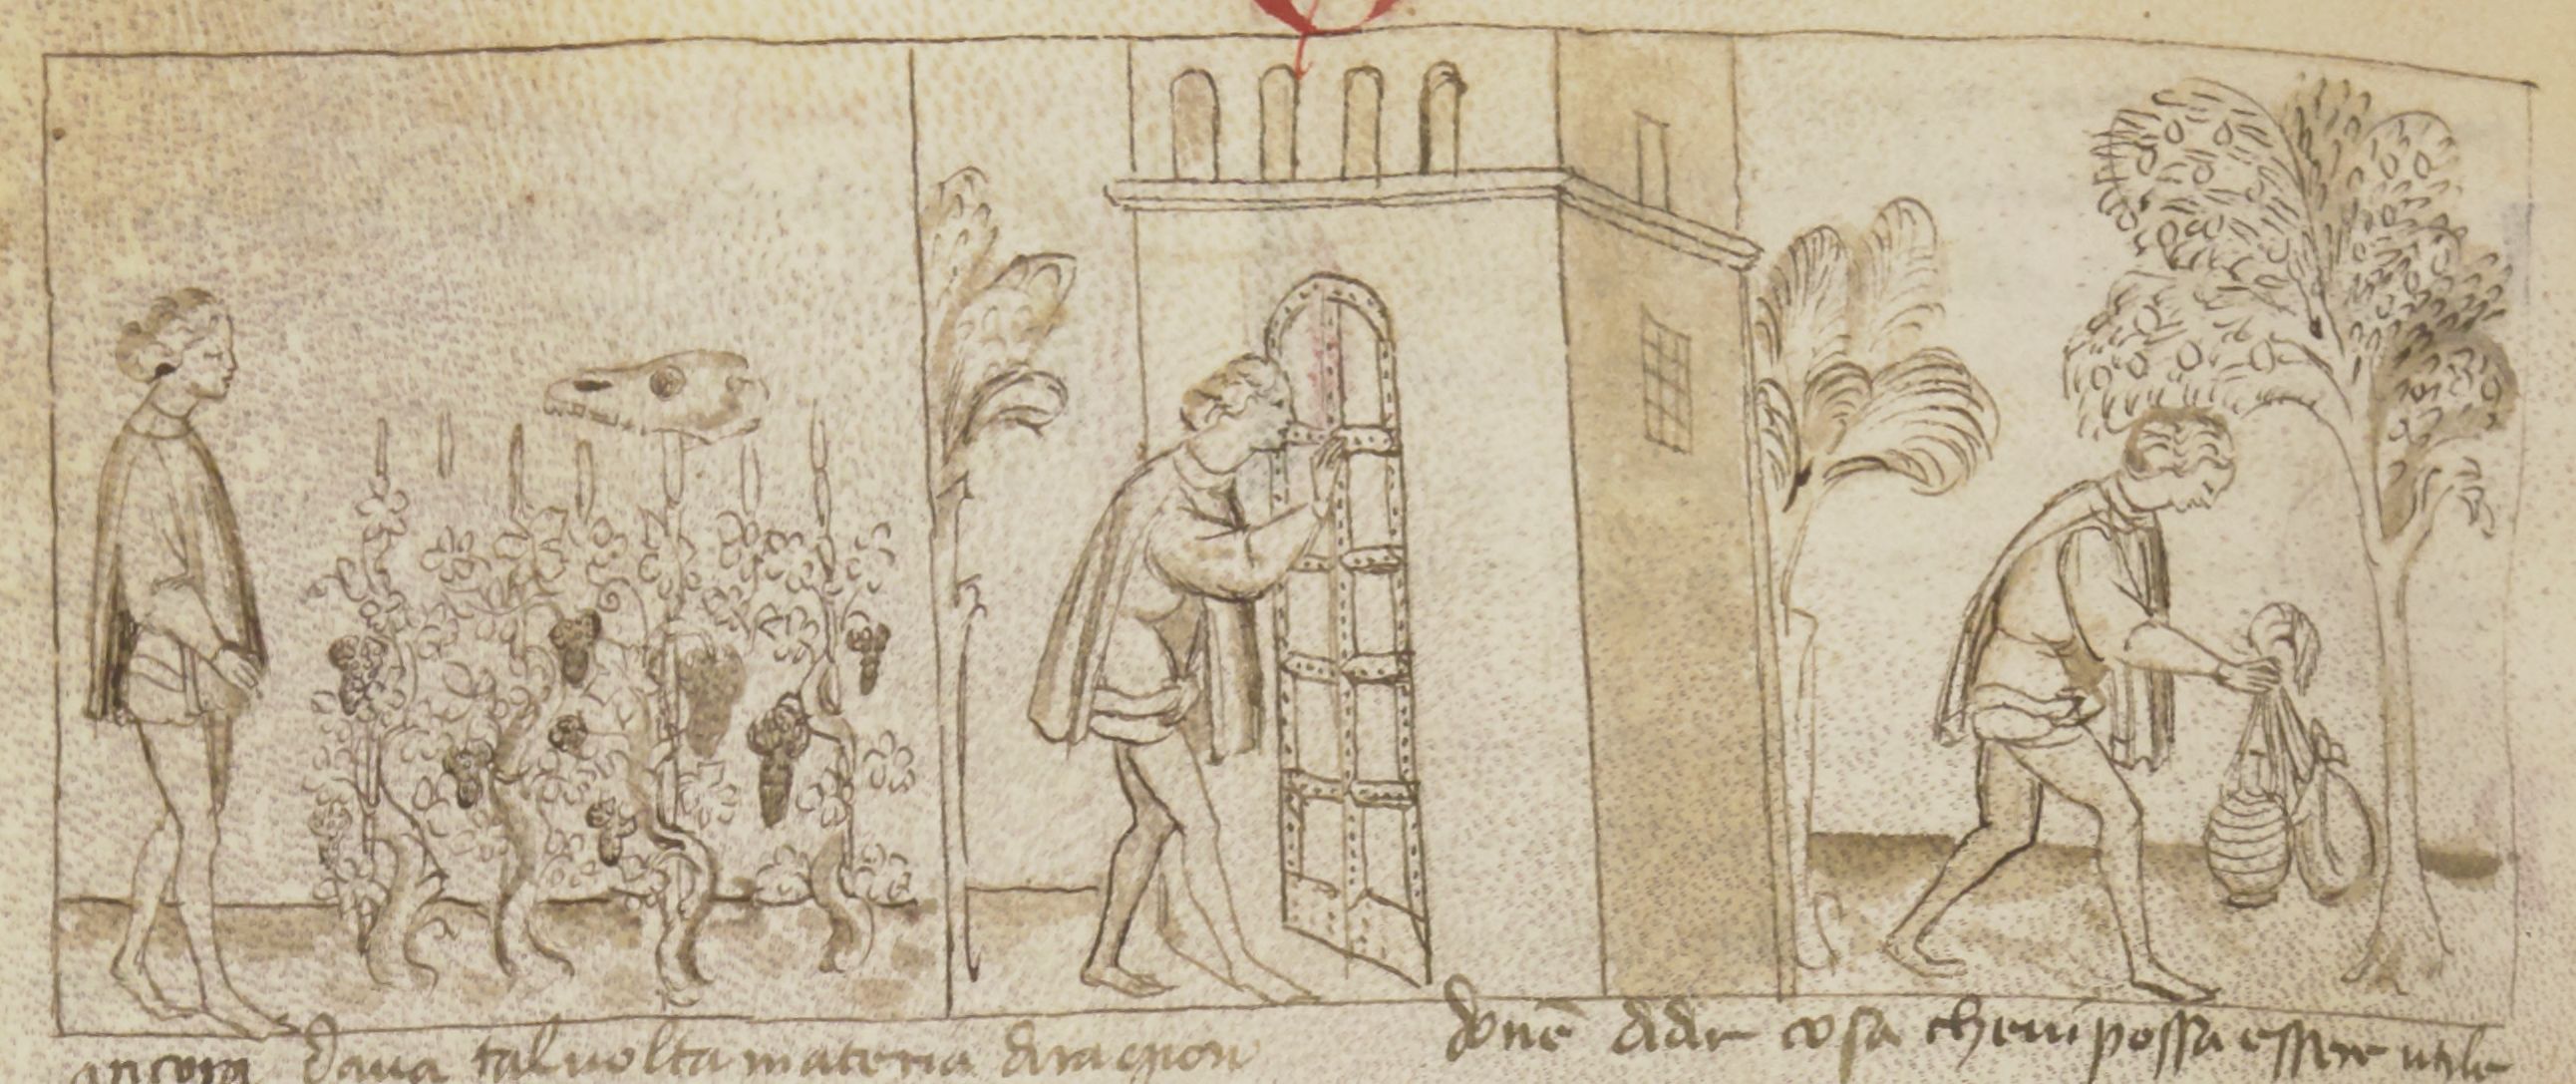 ancora daua tal uolta materia di ragion
donē di dir cosa che ui possa essere utile